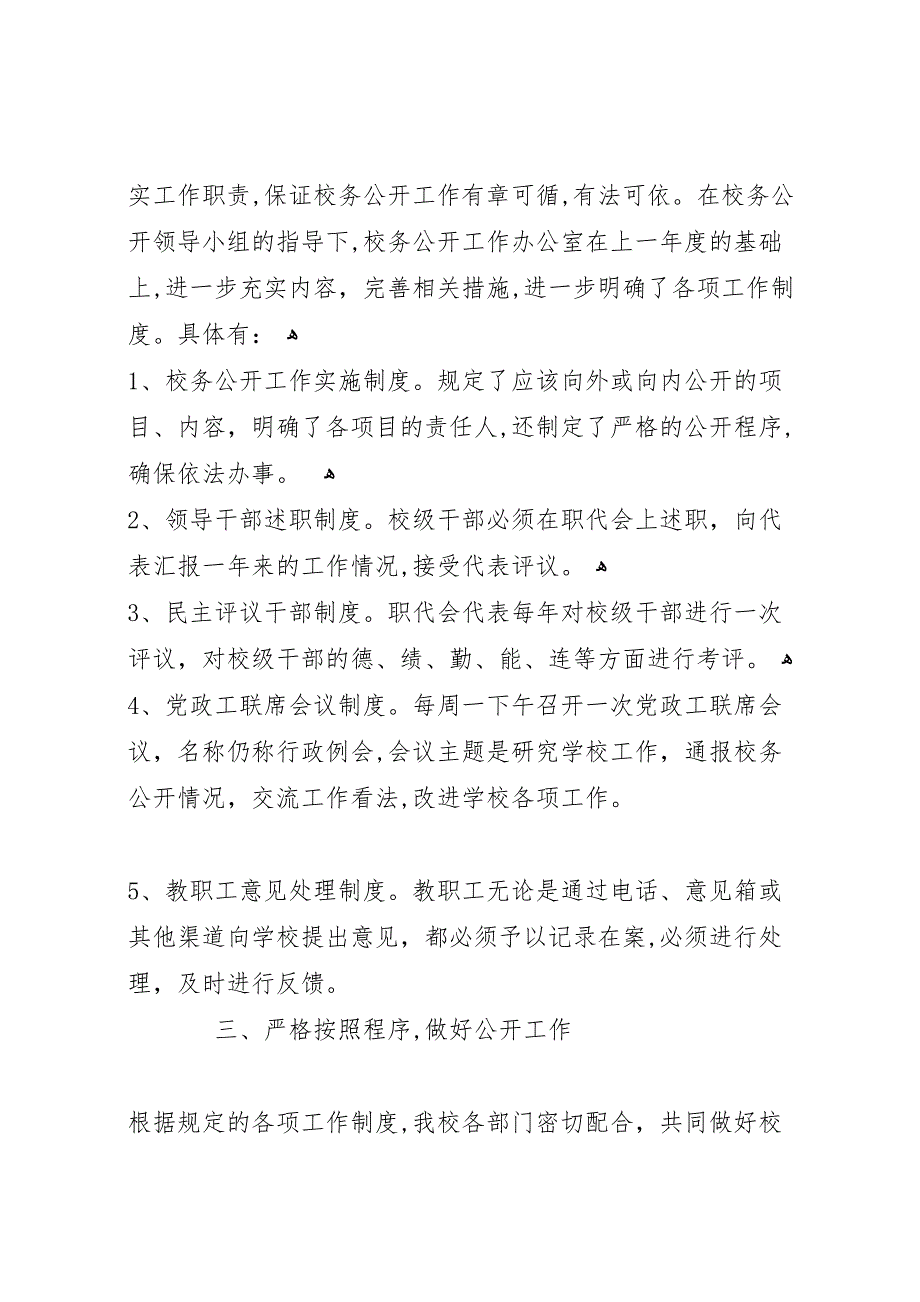 实工作职责,保证校务公开工作有章可循,有法可依。在校务公
开领导小组的指导下,校务公开工作办公室在上一年度的基础
上,进一步充实内容，完善相关措施,进一步明确了各项工作制
度。具体有： ﻫ
1、校务公开工作实施制度。规定了应该向外或向内公开的项
目、内容，明确了各项目的责任人,还制定了严格的公开程序,
确保依法办事。 ﻫ
2、领导干部述职制度。校级干部必须在职代会上述职，向代
表汇报一年来的工作情况,接受代表评议。 ﻫ
3、民主评议干部制度。职代会代表每年对校级干部进行一次
评议，对校级干部的德、绩、勤、能、连等方面进行考评。 ﻫ
4、党政工联席会议制度。每周一下午召开一次党政工联席会
议，名称仍称行政例会,会议主题是研究学校工作，通报校务
公开情况，交流工作看法,改进学校各项工作。
5、教职工意见处理制度。教职工无论是通过电话、意见箱或
其他渠道向学校提出意见，都必须予以记录在案,必须进行处
理，及时进行反馈。
三、严格按照程序,做好公开工作
根据规定的各项工作制度,我校各部门密切配合，共同做好校